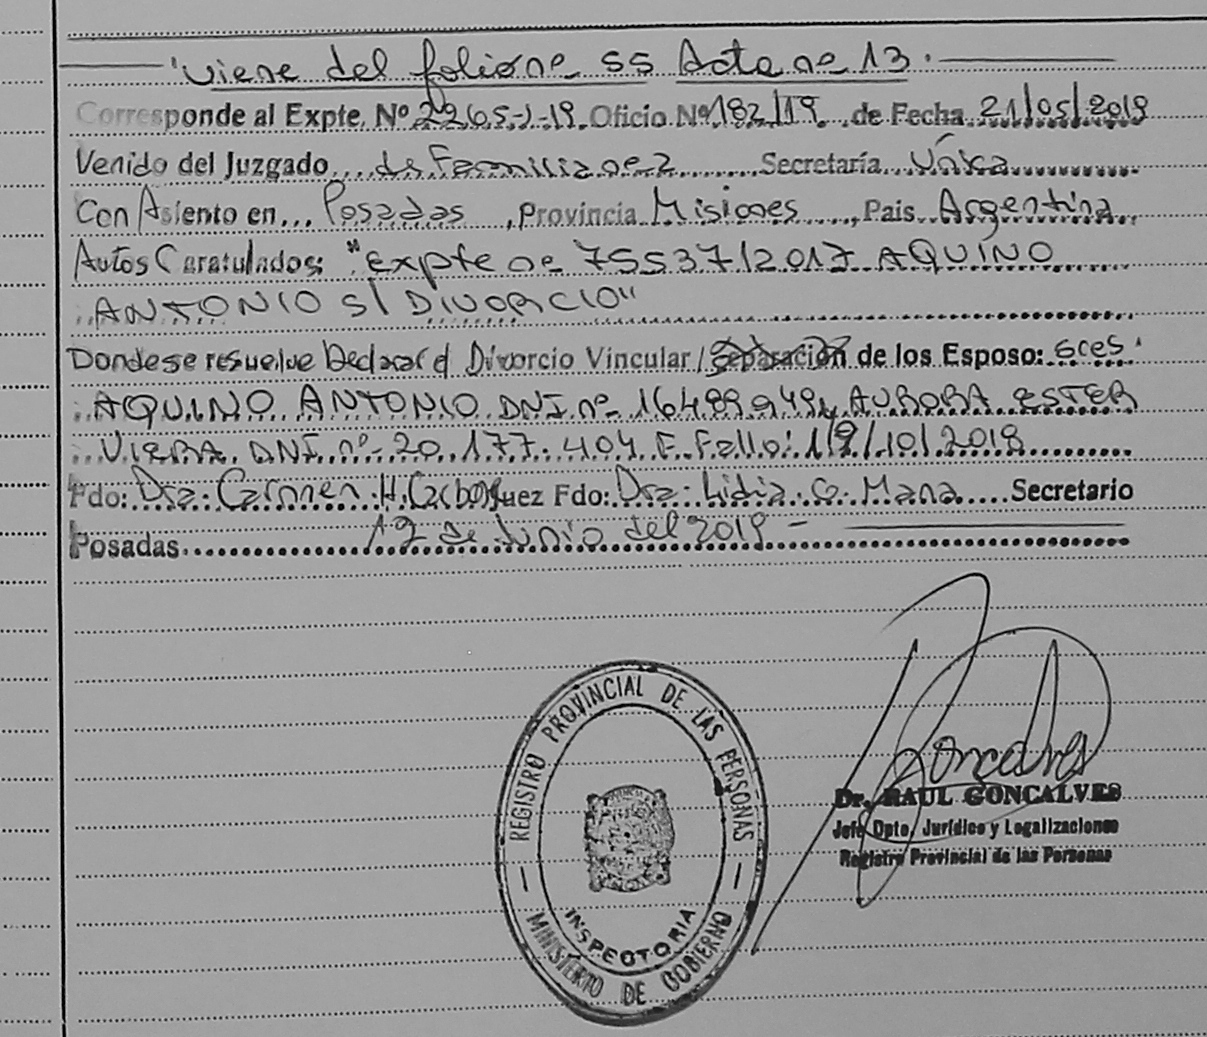 "Viene del folio nº 55 Acta nº 13.
Corresponde al Expte. Nº 2265-J-19 Oficio Nº 182/19 de Fecha 21/05/2019
Venido del Juzgado de Familia nº 2 Secretaría Única
Con Asiento en Posadas, Provincia Misiones, Pais Argentina
Autos Caratulados: "Expte nº 75537/2017 AQUINO
ANTONIO S/ DIVORCIO"
Donde se resuelve Declarar el Divorcio Vincular/Separación de los Esposo: sres.
AQUINO ANTONIO DNI nº 16.489.949 AURORA ESTER
VIERA DNI nº 20.177.404 F. Fallo: 19/10/2018
Fdo: Dra. Carmen H. Fdo: Dra. Lidia Mana Secretario
Posadas 19 de Junio del 2019 -
REGISTRO PROVINCIAL DE LAS PERSONAS
INSPECTORIA
MINISTERIO DE GOBIERNO
Goncalves
Dr. RAUL GONCALVES
Jefe Dpto. Jurídico y Legalizaciones
Registro Provincial de las Personas